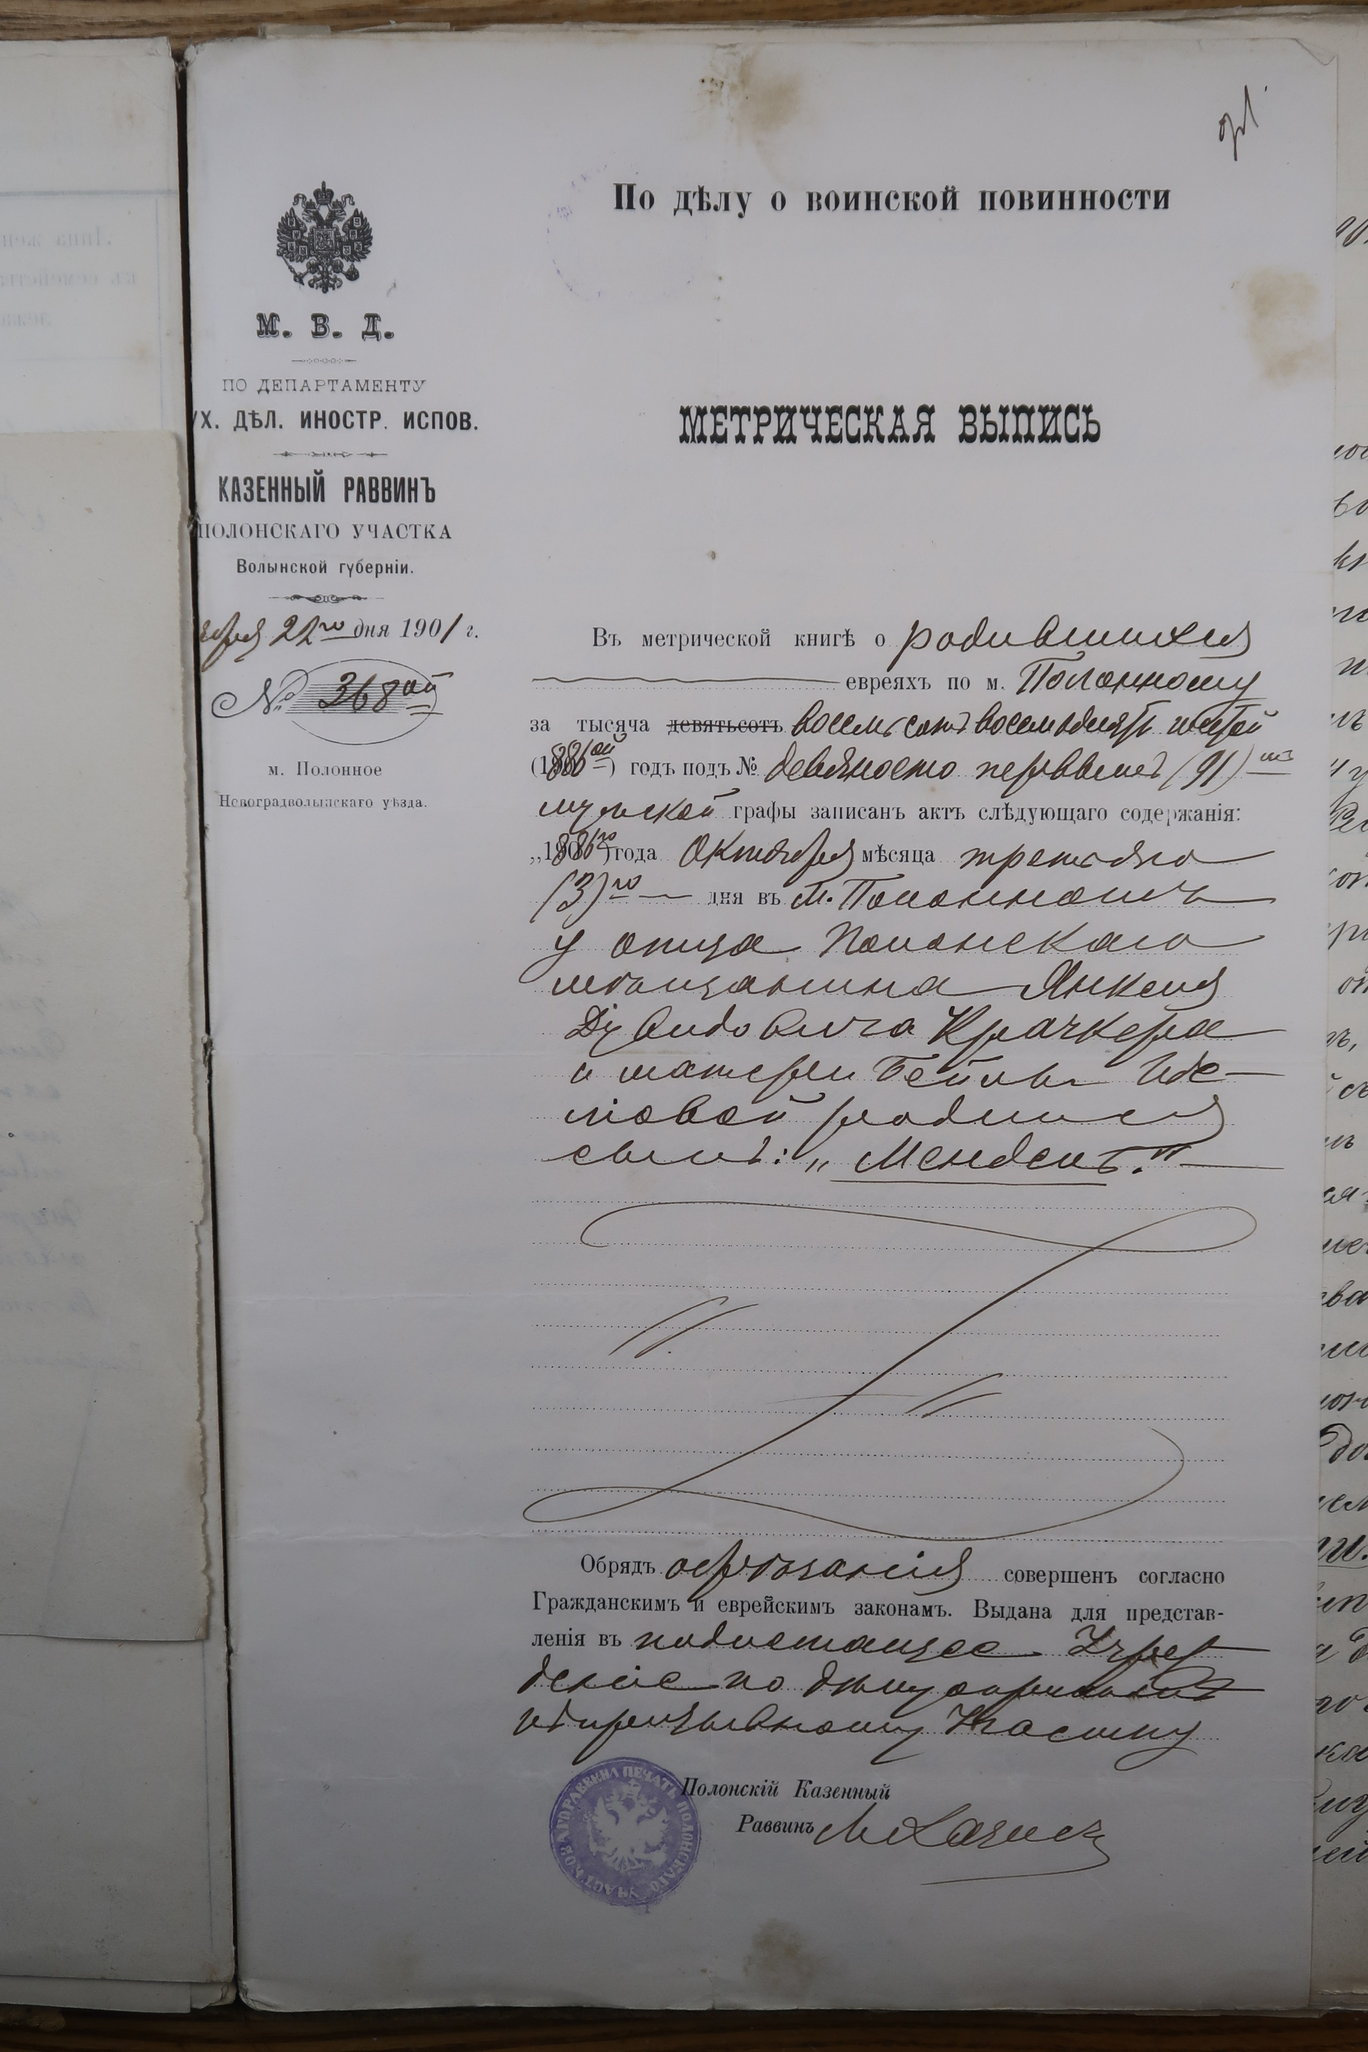 По дѣлу о воинской повинности
М. В. Д.
ПО ДЕПАРТАМЕНТУ
УХ. ДѢЛ. ИНОСТР. ИСПОВ.
КАЗЕННЫЙ РАВВИНЪ
ПОЛОНСКАГО УЧАСТКА
Волынской губерніи.
22го дня 1901 г.
№ 368ой
м. Полонное
Новоградволынскаго уѣзда.
МЕТРИЧЕСКАЯ ВЫПИСЬ
Въ метрической книгѣ о родившихся
евреяхъ по м. Полонному
за тысяча девятьсотъ восемьсотъ восемьдесятъ шестой
(1886ой) годъ подъ № девяносто первымъ (91)мъ
мужской графы записанъ актъ слѣдующаго содержанія:
„1886го) года Октября мѣсяца третьяго
(3)го дня въ м. Полонномъ
у отца Полонскаго
мѣщанина Янкеля
Дувидовича Крачкера
и матери Бейлы
родился
сынъ: „Мендель."
Обрядъ обрѣзанія совершенъ согласно
Гражданскимъ и еврейскимъ законамъ. Выдана для представ-
ленія въ подлежащее Учреж
деніе по дѣлу о приписке
къ призывному Участку
Полонскій Казенный
Раввинъ
ПЕЧАТЬ ПОЛОНСКАГО УЧАСТКОВАГО РАВВИНА